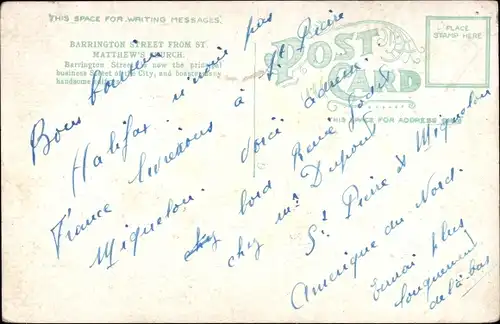 THIS SPACE FOR WRITING MESSAGES.
BARRINGTON STREET FROM ST.
MATTHEW'S CHURCH.
Barrington Street is now the principal
business Street of the City, and boasts many
handsome
POST
CARD
PLACE
STAMP HERE
THIS SPACE FOR ADDRESS ONLY
Bons baisers
Halifax n'voir pas
France livraisons à St Pierre
Miquelon. Voici adresse
bord René
chez Mr Dupont
St Pierre & Miquelon
Amérique du Nord.
Ecrirai plus
longuement
de là-bas